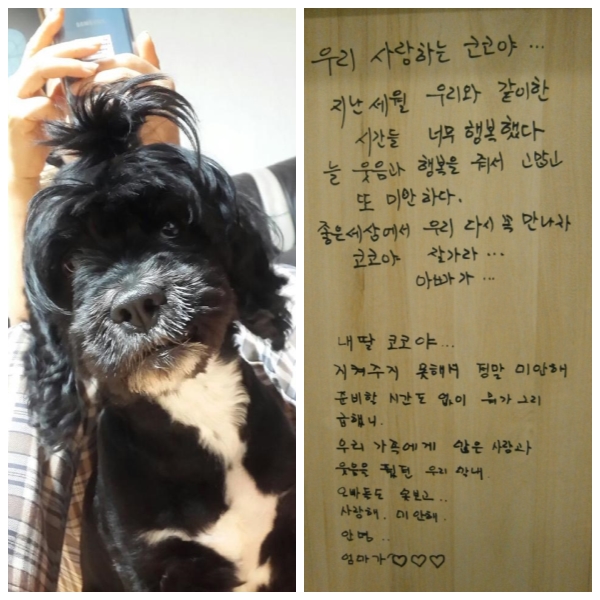 SAMSUNG
우리 사랑하는 코코야 ...
지난 세월 우리와 같이한
시간들 너무 행복했다
늘 웃음과 행복을 줘서 고맙고
또 미안하다.
좋은세상에서 우리 다시 꼭 만나자
코코야 잘가라 ...
아빠가 ...
내딸 코코야...
지켜주지 못해서 정말 미안해
준비할 시간도 없이 뭐가 그리
급했니.
우리 가족에게 많은 사랑과
웃음을 줬던 우리 막내.
오빠들도 못보고..
사랑해. 미안해.
안녕..
엄마가♡♡♡